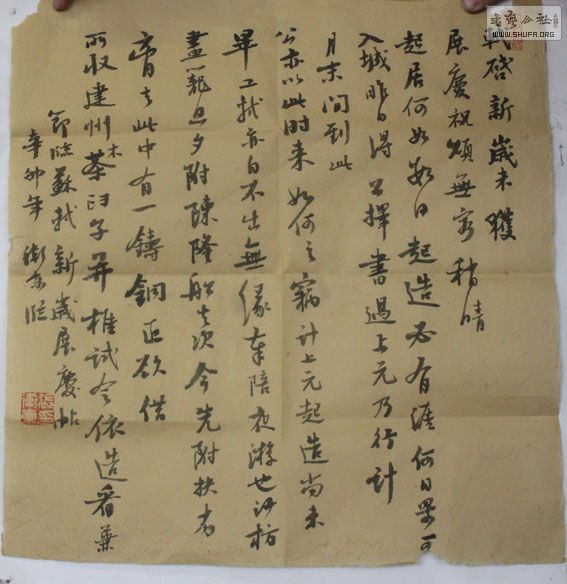 軾啓新歲未獲
展慶祝頌無窮稍晴
起居何如數日起造必有涯何日果可
入城昨日得公擇書過上元乃行計
月末間到此
公亦以此時來如何之竊計上元起造尚未
畢工軾亦自不出無緣奉陪夜游也沙枋
畫籠旦夕附陳隆船去次今先附扶劣
膏去此中有一鑄銅匠欲借
所收建州木茶臼子并椎試令依造看兼
節臨蘇軾新歲展慶帖
辛卯年
書藝公社
WWW.SHUFA.ORG